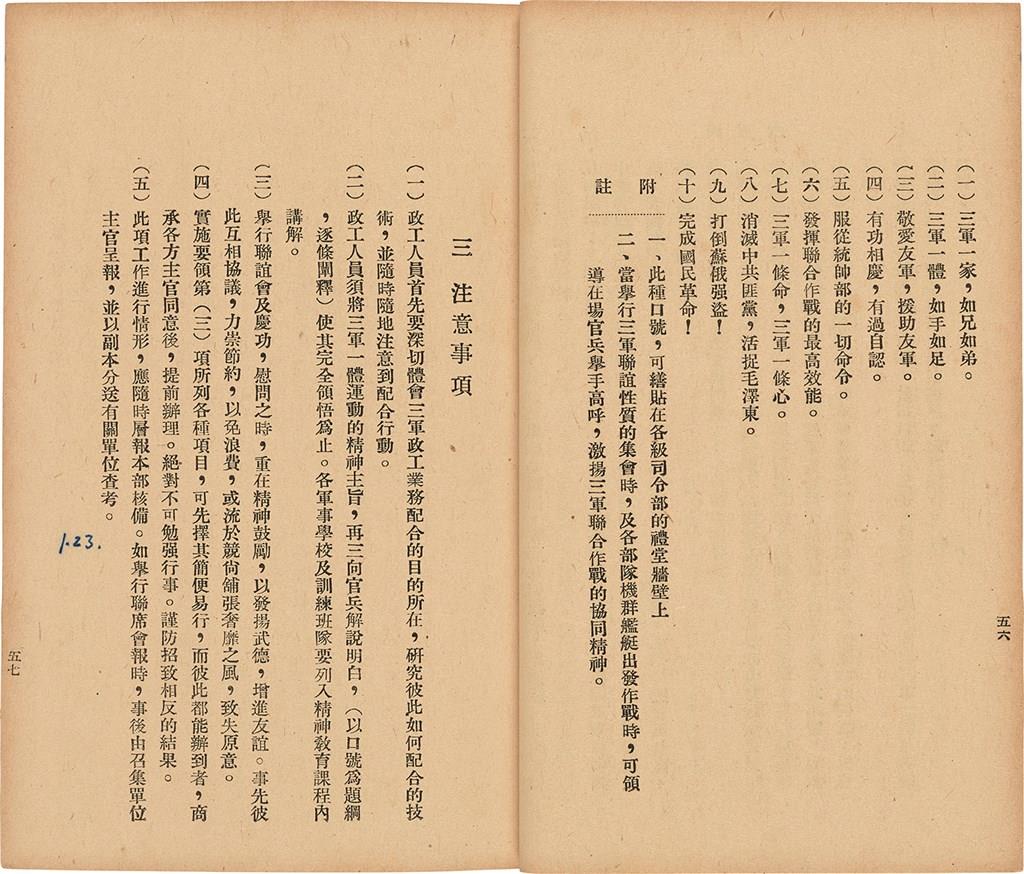 (一)三軍一家，如兄如弟。
(二)三軍一體，如手如足。
(三)敬愛友軍，援助友軍。
(四)有功相慶，有過自認。
(五)服從統帥部的一切命令。
(六)發揮聯合作戰的最高效能。
(七)三軍一條命，三軍一條心。
(八)消滅中共匪黨，活捉毛澤東。
(九)打倒蘇俄强盜！
(十)完成國民革命！
附註
一、此種口號，可繕貼在各級司令部的禮堂牆壁上
二、當舉行三軍聯誼性質的集會時，及各部隊機群艦艇出發作戰時，可領
導在場官兵舉手高呼，激揚三軍聯合作戰的協同精神。
五六
三 注意事項
(一)政工人員首先要深切體會三軍政工業務配合的目的所在，研究彼此如何配合的技
術，並隨時隨地注意到配合行動。
(二)政工人員須將三軍一體運動的精神主旨，再三向官兵解說明白，(以口號爲題綱
，逐條闡釋)使其完全領悟爲止。各軍事學校及訓練班隊要列入精神敎育課程內
講解。
(三)舉行聯誼會及慶功，慰問之時，重在精神鼓勵，以發揚武德，增進友誼。事先彼
此互相協議，力崇節約，以免浪費，或流於競尙舖張奢靡之風，致失原意。
(四)實施要領第(三)項所列各種項目，可先擇其簡便易行，而彼此都能辦到者，商
承各方主官同意後，提前辦理。絕對不可勉强行事。謹防招致相反的結果。
(五)此項工作進行情形，應隨時層報本部核備。如舉行聯席會報時，事後由召集單位
主官呈報，並以副本分送有關單位查考。
1.23.
五七